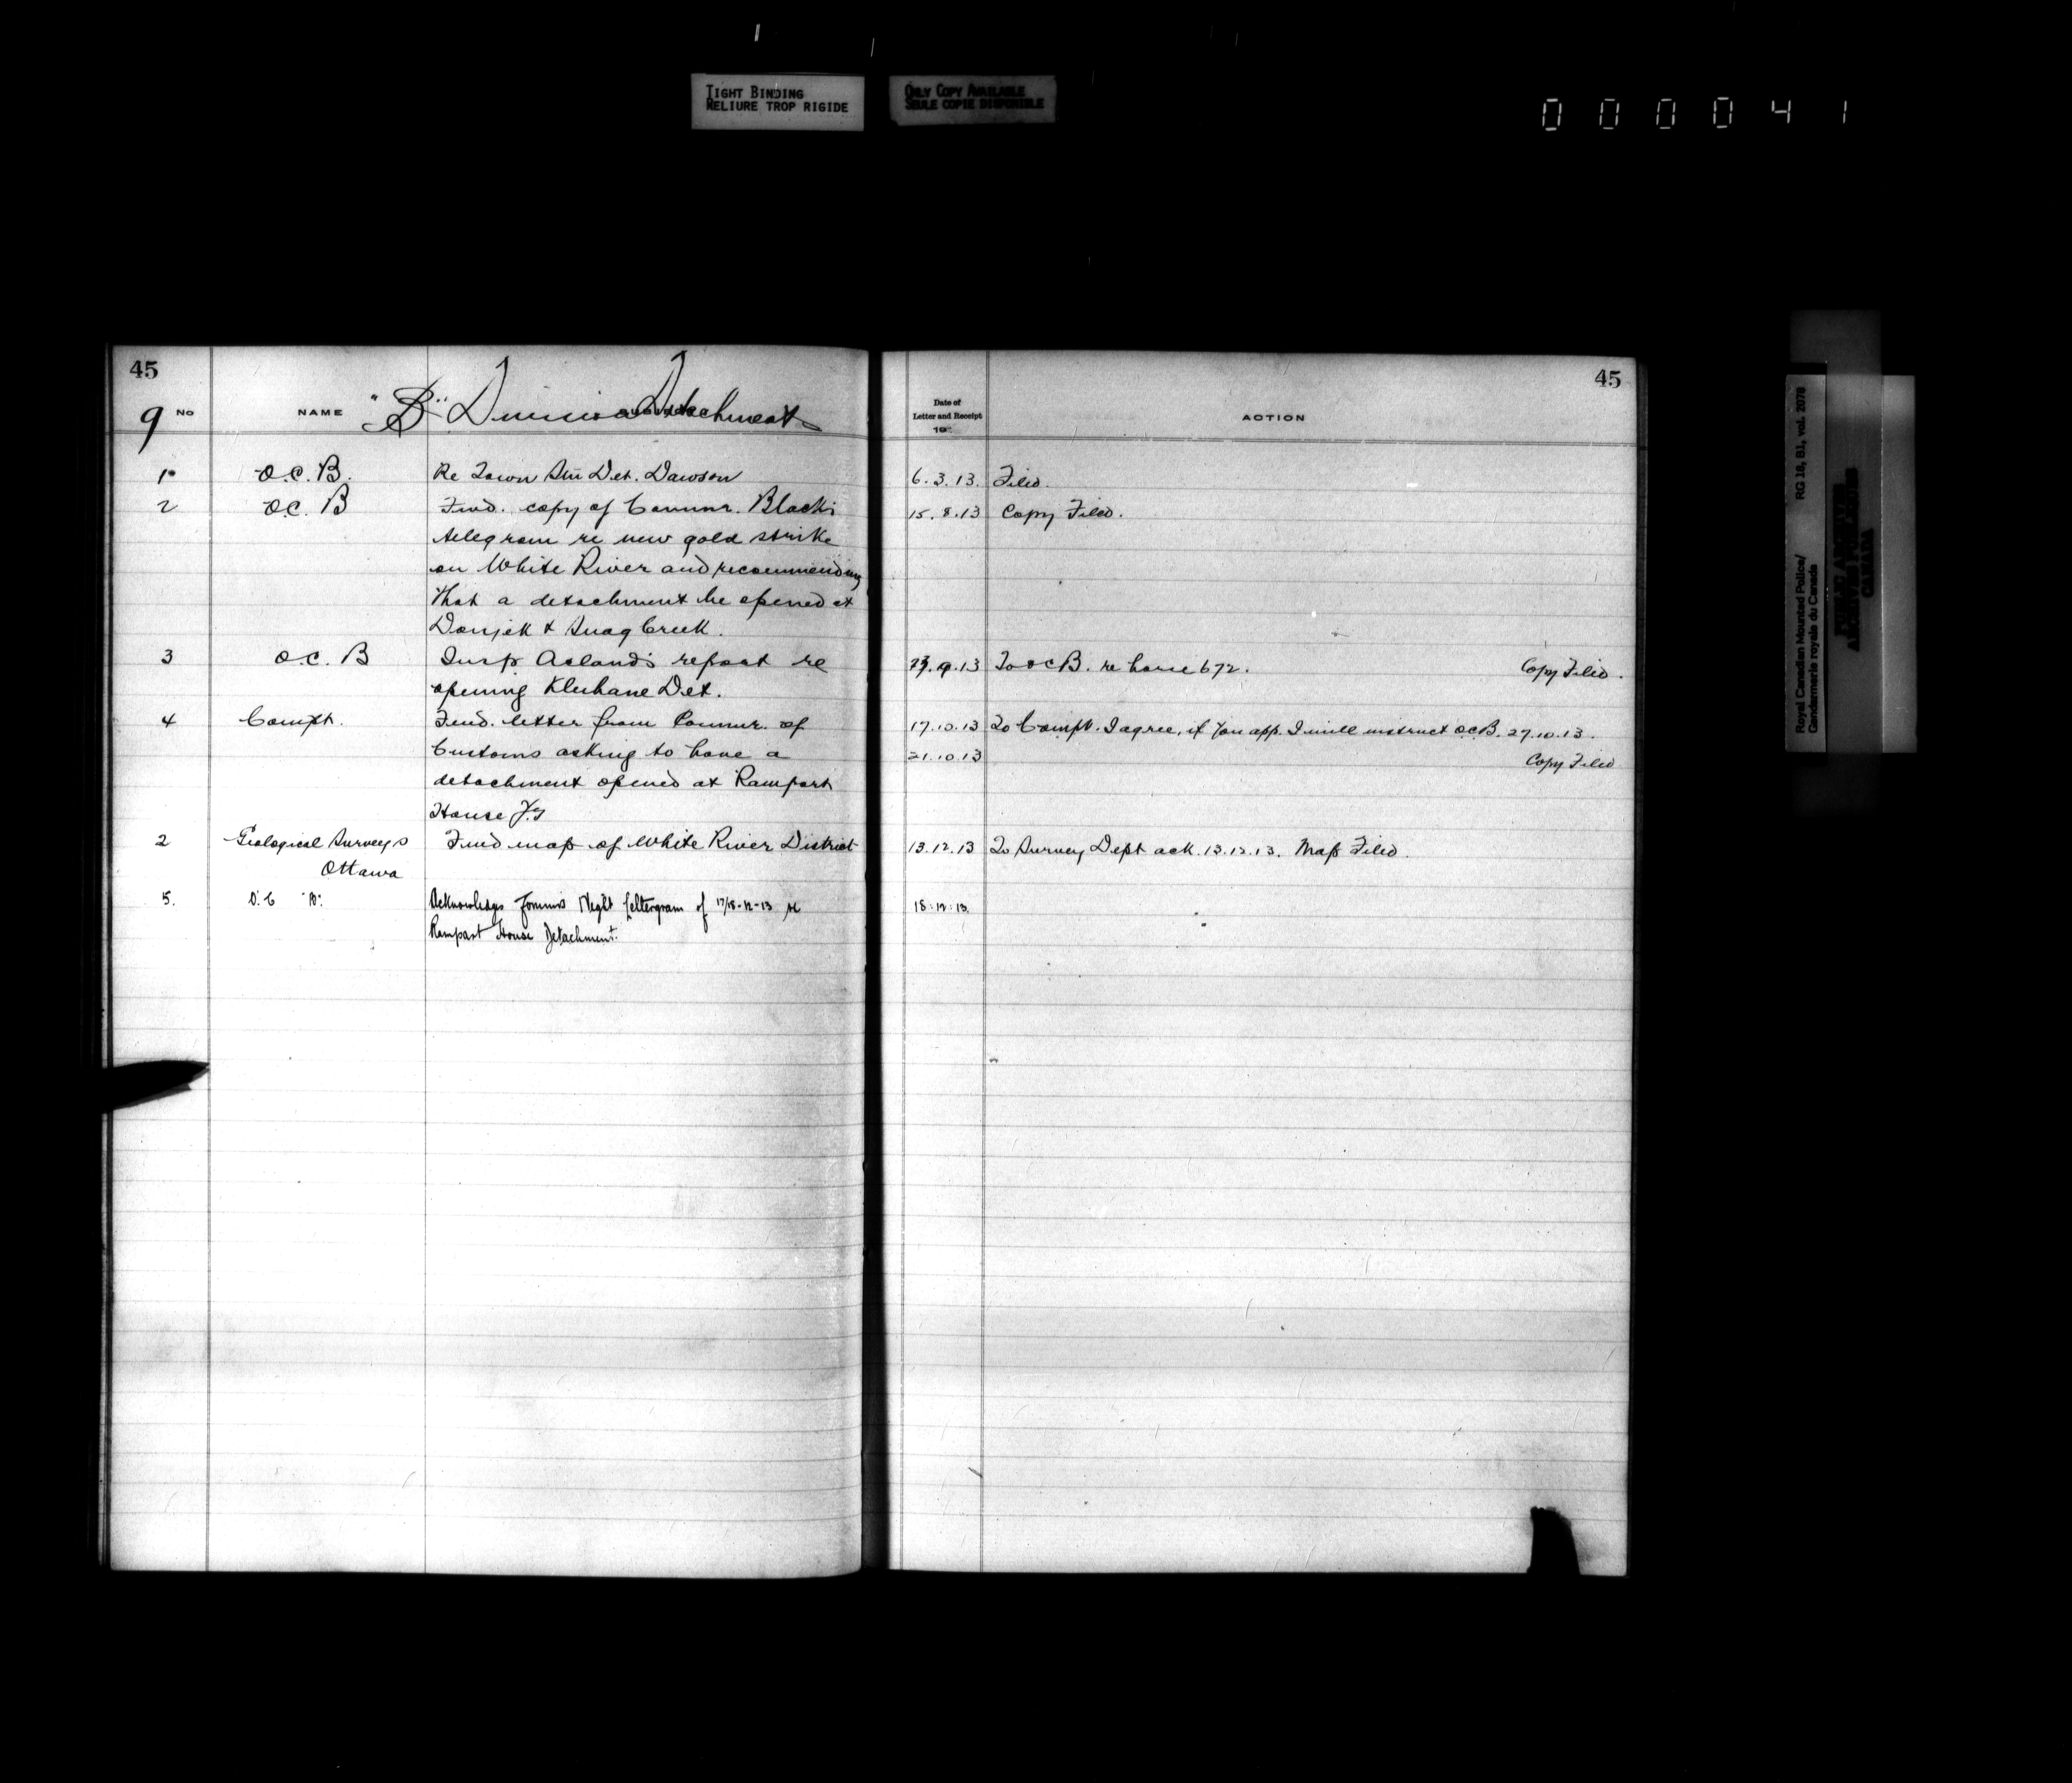 TIGHT BINDING
RELIURE TROP RIGIDE
ONLY COPY AVAILABLE
SEULE COPIE DISPONIBLE
000041
45
9 No NAME "B" Division Detachments
1 O.C. B. Re Town Stn Det. Dawson
2 O.C. B Fwd. copy of Commr. Black's
telegram re new gold strike
on White River and recommending
that a detachment be opened at
Donjek & Snag Creek.
3 O.C. B Insp Acland's report re
opening Kluhane Det.
4 Compt. Fwd. letter from Commr. of
Customs asking to have a
detachment opened at Rampart
House Y.T
2 Geological Surveys Fwd map of White River District
Ottawa
5. O.C "B". Acknowledges Comms Night Lettergram of 17/18-12-13 re
Rampart House Detachment.
45
Date of
Letter and Receipt
19
ACTION
6.3.13. Filed.
15.8.13 Copy Filed.
.9.13 To O C B. re horse 672. Copy Filed.
17.10.13 To Compt. I agree, if you app. I will instruct O.C.B. 27.10.13.
21.10.13 Copy Filed
13.12.13 To Survey Dept ack. 13.12.13. Map Filed.
18.12.13.
Royal Canadian Mounted Police/
Gendarmerie royale du Canada
RG 18, B1, vol. 2078
PUBLIC ARCHIVES
ARCHIVES PUBLIQUES
CANADA